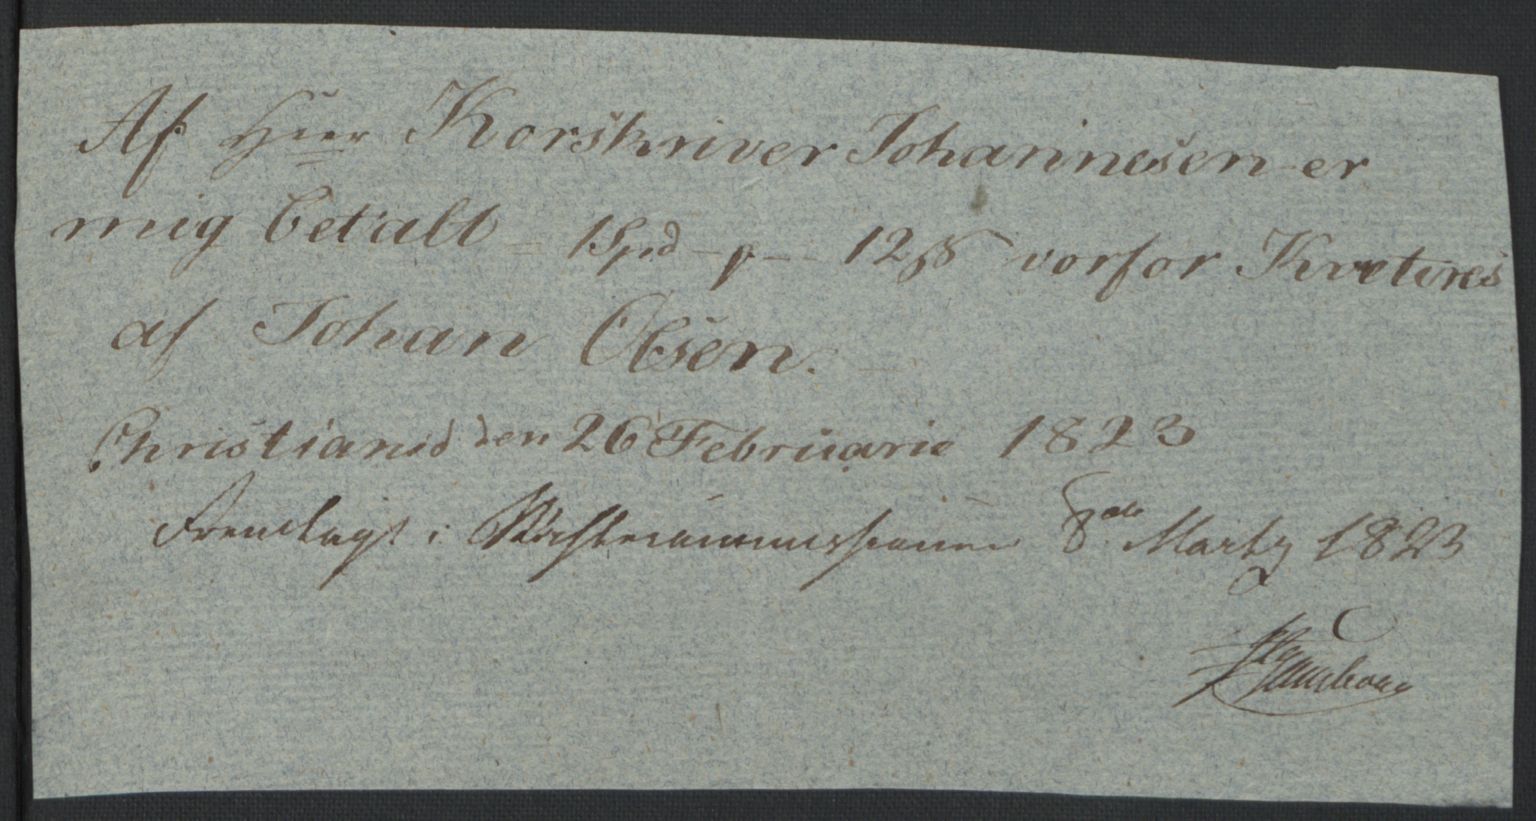 Af Herr Korskriver Johannesen er
mig betalt = 1 Spd - f - 12 ß vorfor Kveteres
af Johan Olsen.
Christiansd den 26 Februarie 1823
Fremlagt i 8de Martz 1823